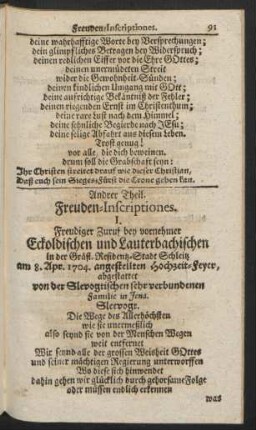 Freuden-Inscriptiones. 91
deine wahrhafftige Worte bey Versprechungen;
dein glimpfliches Betragen bey Widerspruch;
deinen redlichen Eiffer vor die Ehre GOttes;
deinen unermüdeten Streit
wider die Gewohnheit-Sünden;
deinen kindlichen Umgang mit GOtt;
deine auffrichtige Bekäntniß der Fehler;
deinen Ernst im Christenthum;
deine rare Lust nach dem Himmel;
deine sehnliche Begierde nach JEsu;
deine selige Abfahrt aus diesem Leben.
Trost genug!
vor alle, die dich beweinen.
drum soll die Grabschafft seyn:
Ihr Christen streitet drauf wie dieser Christian,
Daß euch sein Sieges-Fürst die Crone geben kan.
Andrer Theil.
Freuden-Inscriptiones.
I.
Freudiger Zuruf bey vornehmer
Eckoldischen und Lauterbachischen
in der Gräfl. Residentz-Stadt Schleitz
am 8. Apr. 1704. angestellten Hochzeit-Feyer,
abgestattet
von der Slevogtischen sehr verbundenen
Familie in Jena.
Slevogt.
Die Wege des Allerhöchsten
wie sie unermeßlich
also seynd sie von der Menschen Wegen
weit entfernet
Wir seynd alle der grossen Weisheit GOttes
und seiner mächtigen Regierung unterworffen
Wo diese sich hinwendet
dahin gehen wir glücklich durch gehorsame Folge
oder müssen endlich erkennen
was